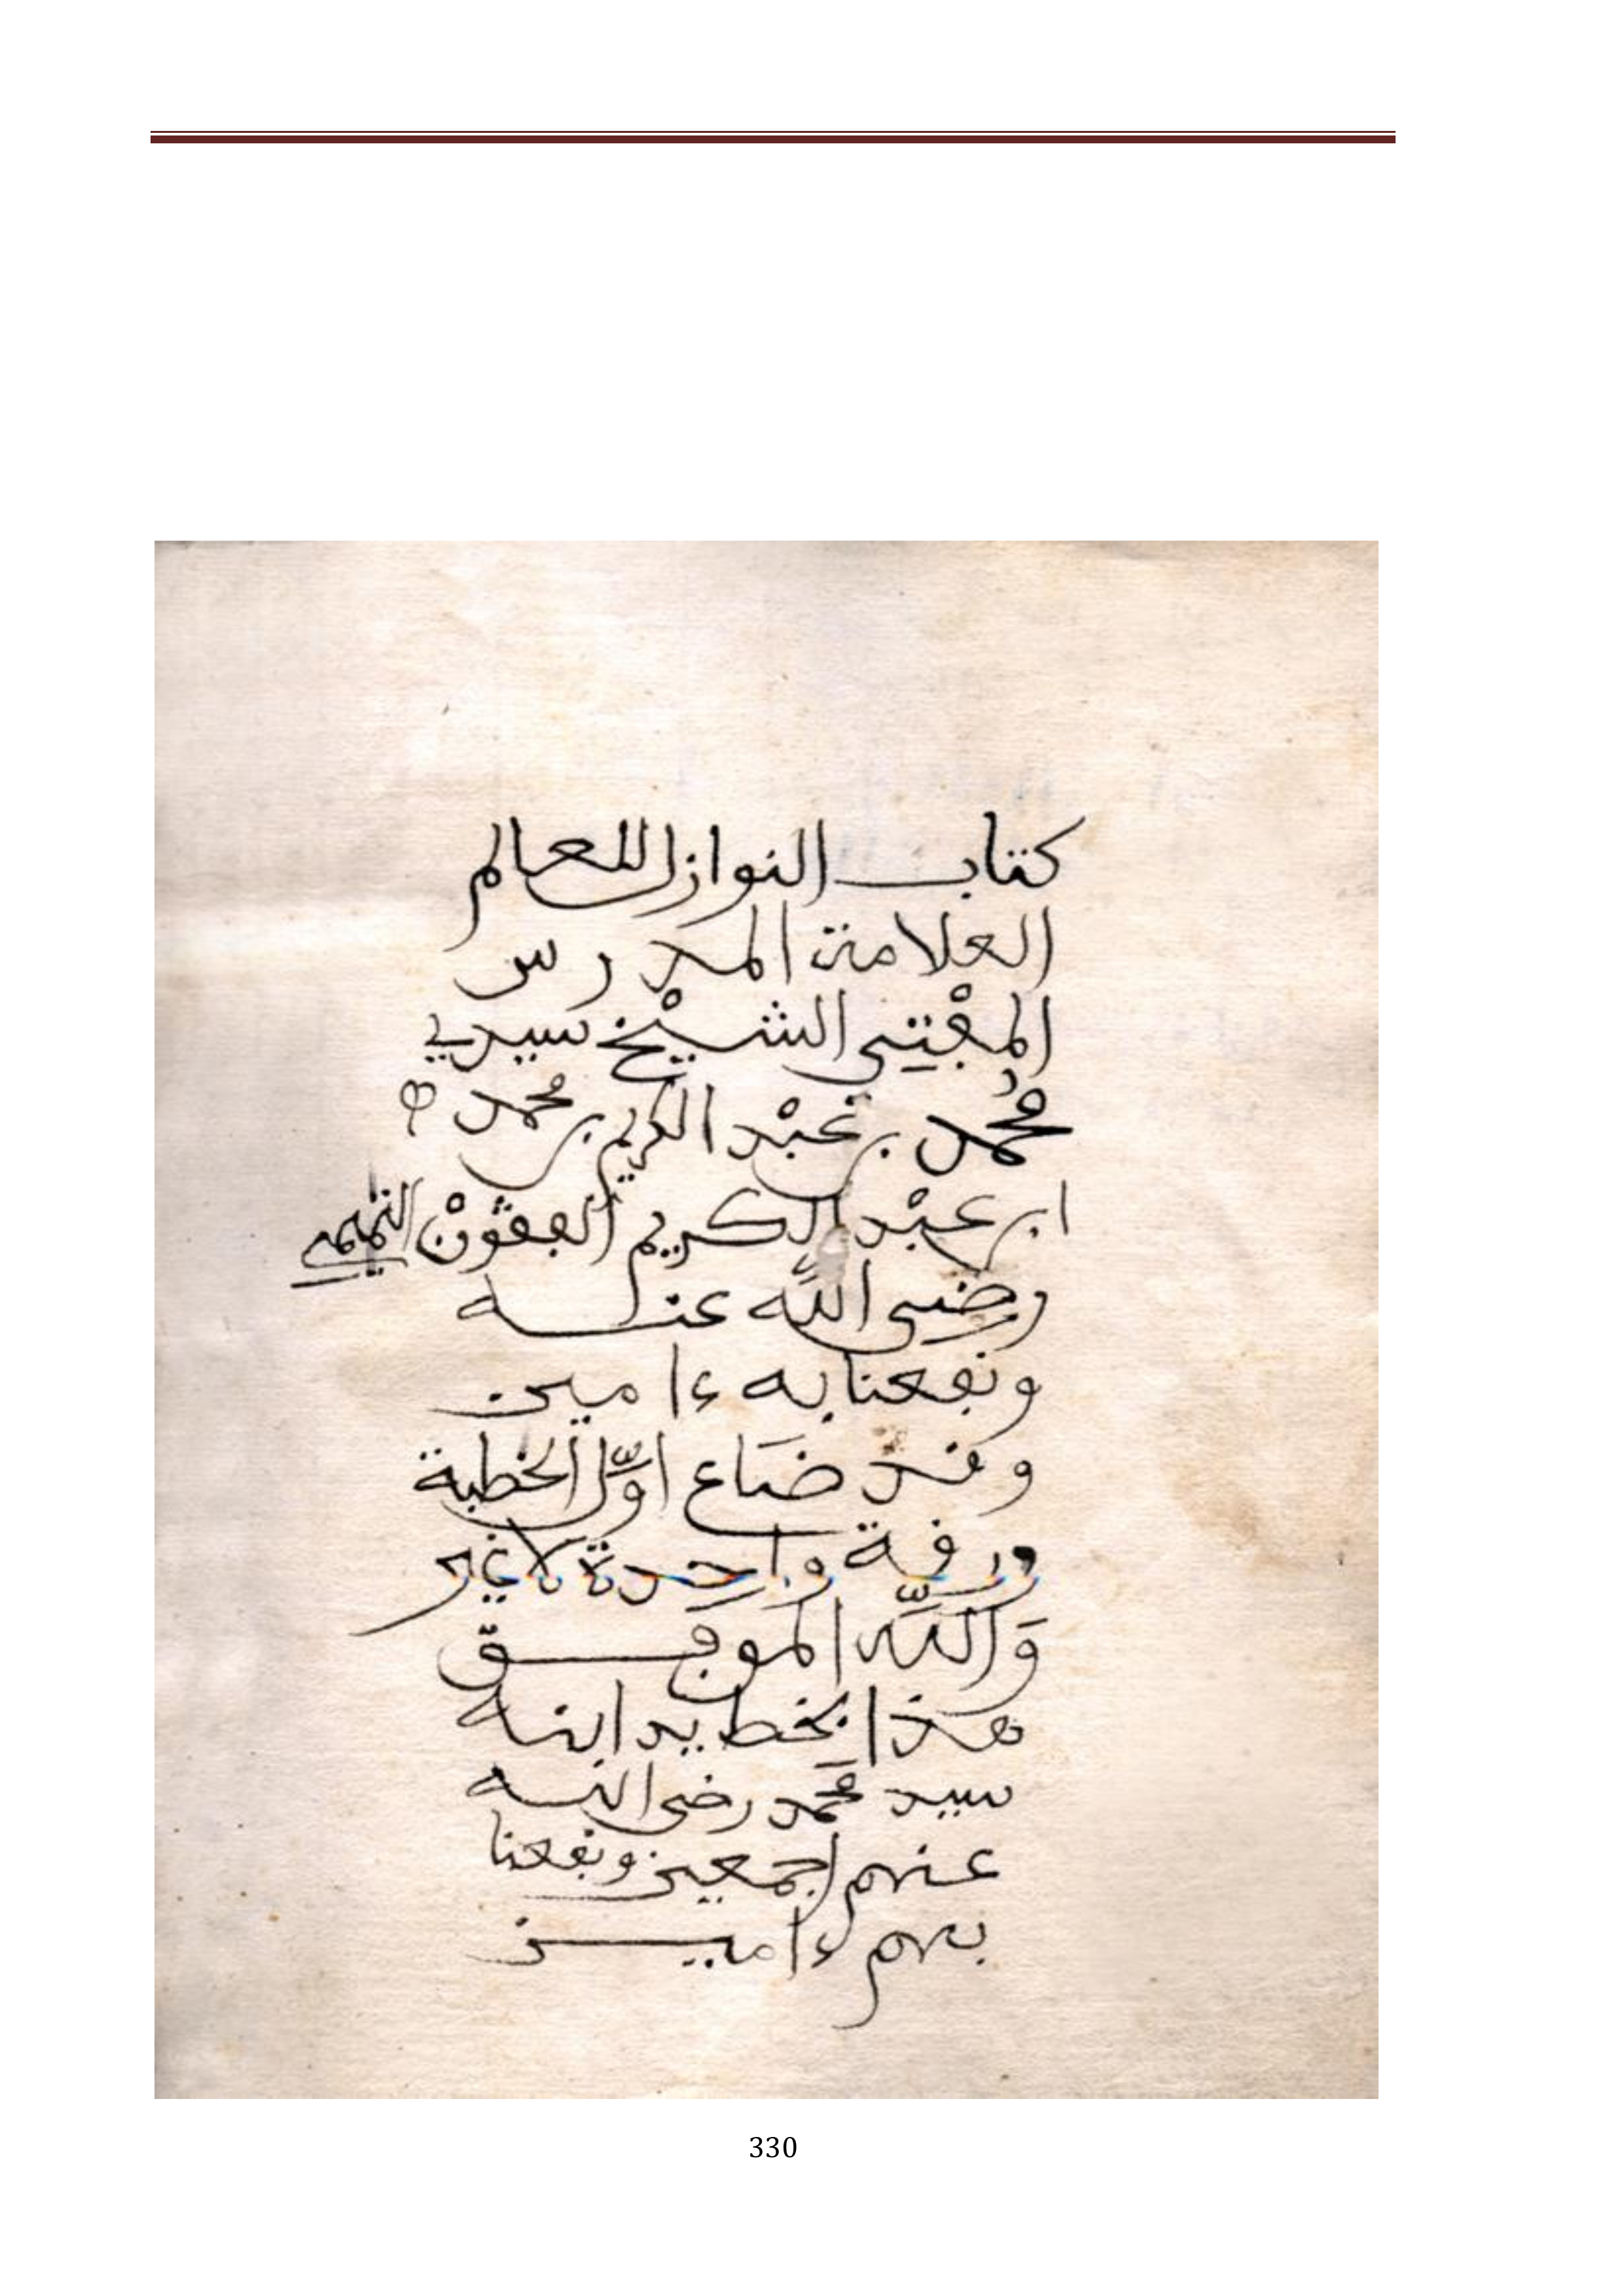 كتاب النوازل للعالم
العلامة المدرس
المفتي الشيْخ سيدي
مُحمد بن عبْد الكريم بن محمد
ابن عبْد الكريم الفقوْن التميمي
رضي الله عنه
ونفعنا به ءامين
وقد ضَاع اوَّل الخطبة
ورقة واحدة لا غير
وَاللّه الموفق
هذا بخط يد ابنه
سيد محَمد رضي الله
عنهم اجمعين ونفعنا
بهم ءامين
330